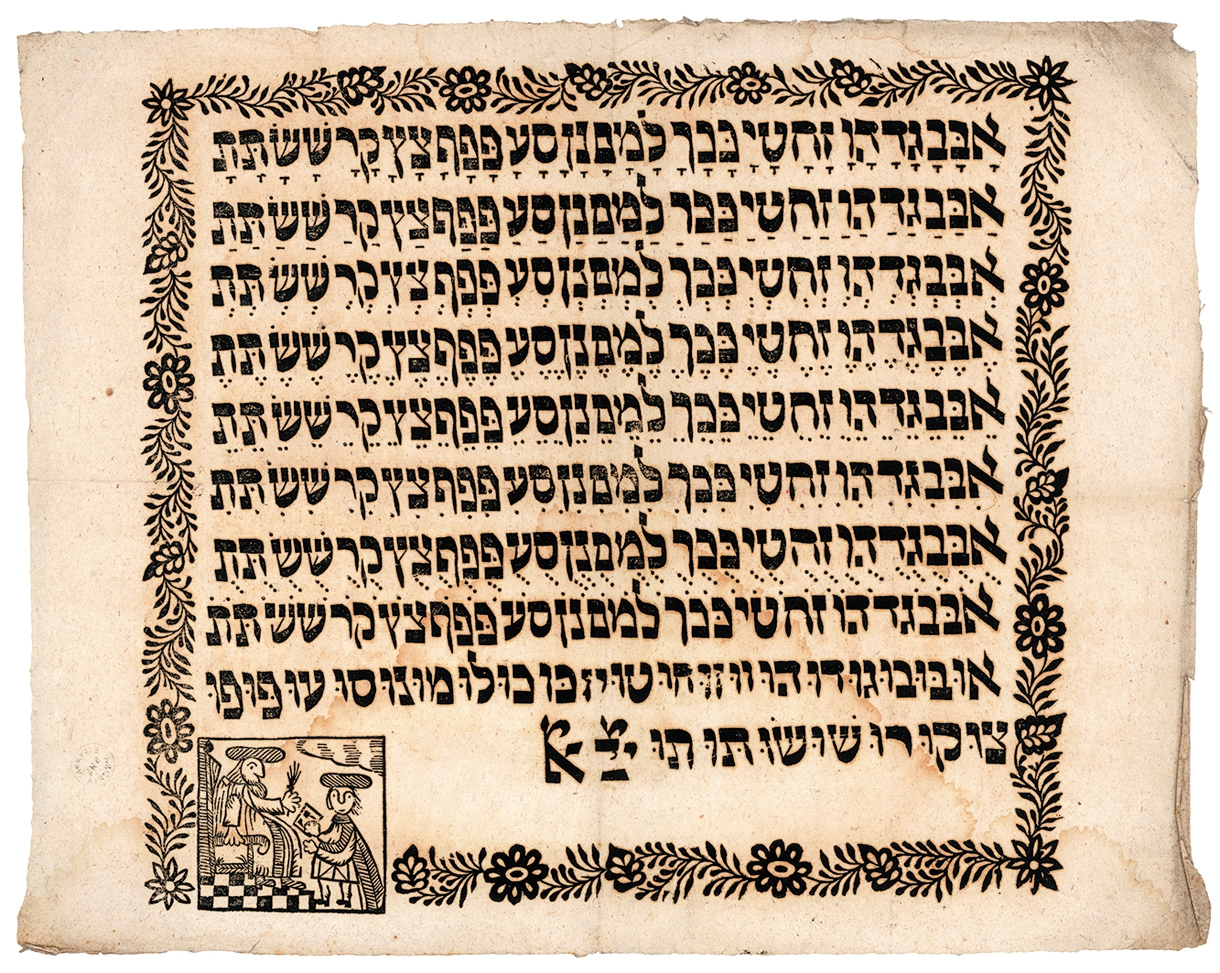 אָבָּבָגָדָהָוָזָחָטָיָכָּכָךָלָמָםָנָןָסָעָפָּפָףָצָץָקָרָשָׁשָׂתָּתָ
אַבַּבַגַדַהַוַזַחַטַיַכַּכַךַלַמַםַנַןַסַעַפַּפַףַצַץַקַרַשַׁשַׂתַּתַ
אְבְּבְגְדְהְוְזְחְטְיְכְּכְךְלְמְםְנְןְסְעְפְּפְףְצְץְקְרְשְׁשְׂתְּתְ
אֶבֶּבֶגֶדֶהֶוֶזֶחֶטֶיֶכֶּכֶךֶלֶמֶםֶנֶןֶסֶעֶפֶּפֶףֶצֶץֶקֶרֶשֶׁשֶׂתֶּתֶ
אֵבֵּבֵגֵדֵהֵוֵזֵחֵטֵיֵכֵּכֵךֵלֵמֵםֵנֵןֵסֵעֵפֵּפֵףֵצֵץֵקֵרֵשֵׁשֵׂתֵּתֵ
אִבִּבִגִדִהִוִזִחִטִיִכִּכִךִלִמִםִנִןִסִעִפִּפִףִצִץִקִרִשִׁשִׂתִּתִ
אֻבֻּבֻגֻדֻהֻוֻזֻחֻטֻיֻכֻּכֻךֻלֻמֻםֻנֻןֻסֻעֻפֻּפֻףֻצֻץֻקֻרֻשֻׁשֻׂתֻּתֻ
אֹבֹּבֹגֹדֹהֹוֹזֹחֹטֹיֹכֹּכֹךֹלֹמֹםֹנֹןֹסֹעֹפֹּפֹףֹצֹץֹקֹרֹשֹׁשֹׂתֹּתֹ
אוּבּוּבוּגוּדוּהוּווּזוּחוּטוּיוּכּוּכוּלוּמוּנוּסוּעוּפּוּפוּ
צוּקוּרוּשׁוּשׂוּתּוּתוּ